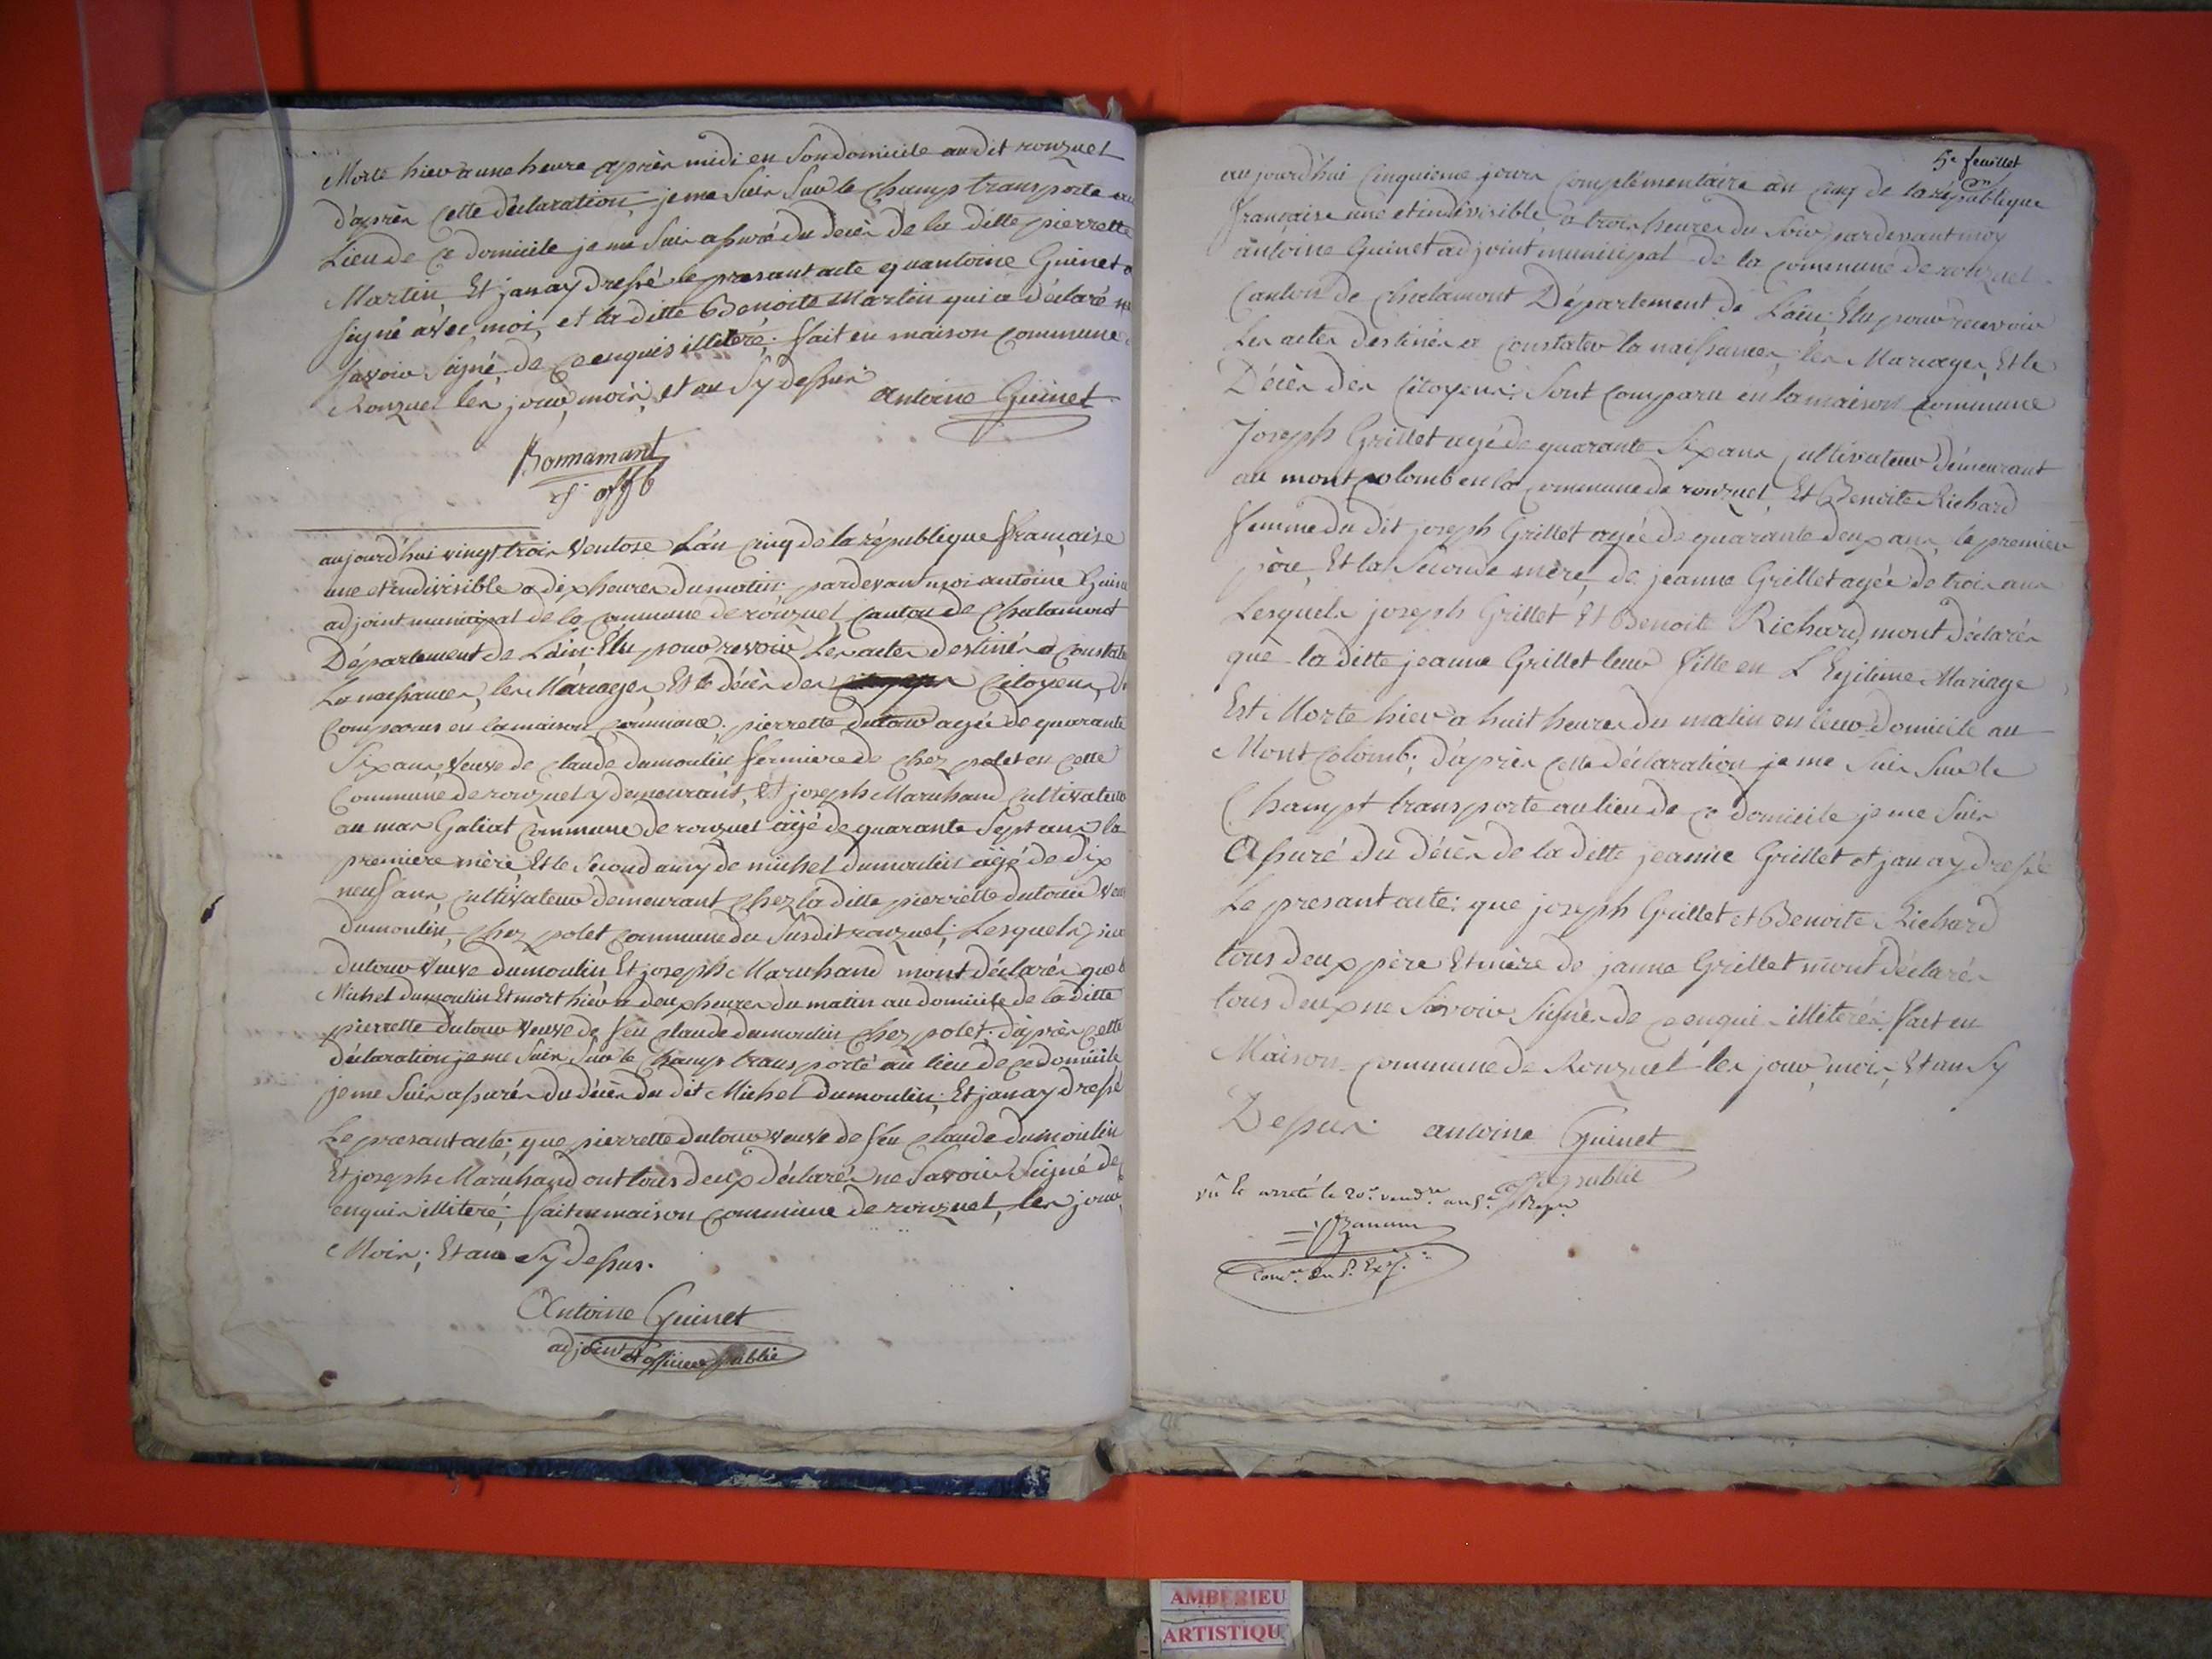 Morte hier a une heure après midi en Son domicile au dit ronzuel
d'après Cette déclaration, je me Suis Sur le Champ transporte au
Lieu de Ce domicile je me Suis assuré du decès de la ditte pierrette
Martin, Et jan ay dressé le presant acte qu antoine Guinet a
Signé avec moi, et la ditte Benoite Martin qui a déclaré ne
Savoir Signé de ce enquis illiteré; fait en maison Commune
Ronzuel les jour, mois, et an Sy dessus.
antoine Guinet
Bonnamant
aujourd'hui vingt trois Ventose Lán Cinq de la république française
une et indivisible a dix heures du matin pardevant moi antoine Guine
adjoint municipal de la Commune de ronzuel Canton de Chalamont
Département de Láin Elu pour resvoir Les actes destinés a Constate
La naissances, les Mariages, Et le décès des Citoyens,
Comparus en la maison Commune, pierrette dutour agée de quarante
Six ans, Veuve de Claude dumoulin fermiere de Chez polet en Cette
Commune de ronzuel y demeurant, Et joseph Maruhand Cultivateur
au mas Galiat Commune de ronzuel agé de quarante Sept ans la
premiere mère, Et le Second amy de michel dumoulin agé de dix
neuf ans, Cultivateur demeurant Chez la ditte pierrette dutour veu
dumoulin, Chez polet Commune du Susdit ronzuel, Lesquels pier
dutour Veuve dumoulin Et joseph Maruhand mont déclarés que
Michel dumoulin Et mort hier a deux heures du matin au domicile de la ditte
pierrette dutour Veuve de feu Claude dumoulin Chez polet, d'après Cette
déclaration je me Suis Sur le Champ transporté au lieu de Ce domicile
je me Suis assurés du décès du dit Michel dumoulin; Et jan ay dressé
Le presant acte; que pierrette dutour veuve de feu Claude dumoulin
Et joseph Maruhand ont tous deux déclarés ne Savoir Signé de
enquis illiteré; fait en maison Commune de ronzuel, les jour,
Mois; Et an Sy dessus.
Antoine Guinet
adjoint et officier public
5e feuillet
aujourd'hui Cinquieme jours Complémentaire an Cinq de la république
française une et indivisible, a trois heures du Soir pardevant moy
antoine Guinet adjoint municipal de la Commune de ronzuel
Canton de Chalamont Département de Láin, Elu pour recevoir
Les actes destinés a Constater la naissances, les Mariages, Et le
Décès des Citoyens; Sont Comparu en la maison Commune
Joseph Grillet agé de quarante Six ans Cultivateur demeurant
au mont Colomb en la Commune de ronzuel, Et Benoite Richard
femme du dit joseph Grillet agée de quarante deux ans, le premier
père, Et la Seconde mère, de jeanne Grillet agée de trois ans
Lesquels joseph Grillet Et Benoite Richard mont déclarés
que la ditte jeanne Grillet leur fille en L Egitime Mariage
Est Morte hier a huit heures du matin en leur domicile au
Mont Colomb; d'après Cette déclaration je me Suis Sur le
Champt transporte au lieu de Ce domicile je me Suis
assuré du décès de la ditte jeanne Grillet et jan ay dressé
Le presant acte; que joseph Grillet et Benoite Richard
tous deux père Et mère de janne Grillet mont déclarés
tous deux ne Savoir Signés de Ce enquis illiterés; fait en
Maison Commune de Ronzuel les jour, mois, Et an Sy
Dessus. antoine Guinet
off public
vû et arreté le 20e vend.re an 6e
AMBERIEU
ARTISTIQU